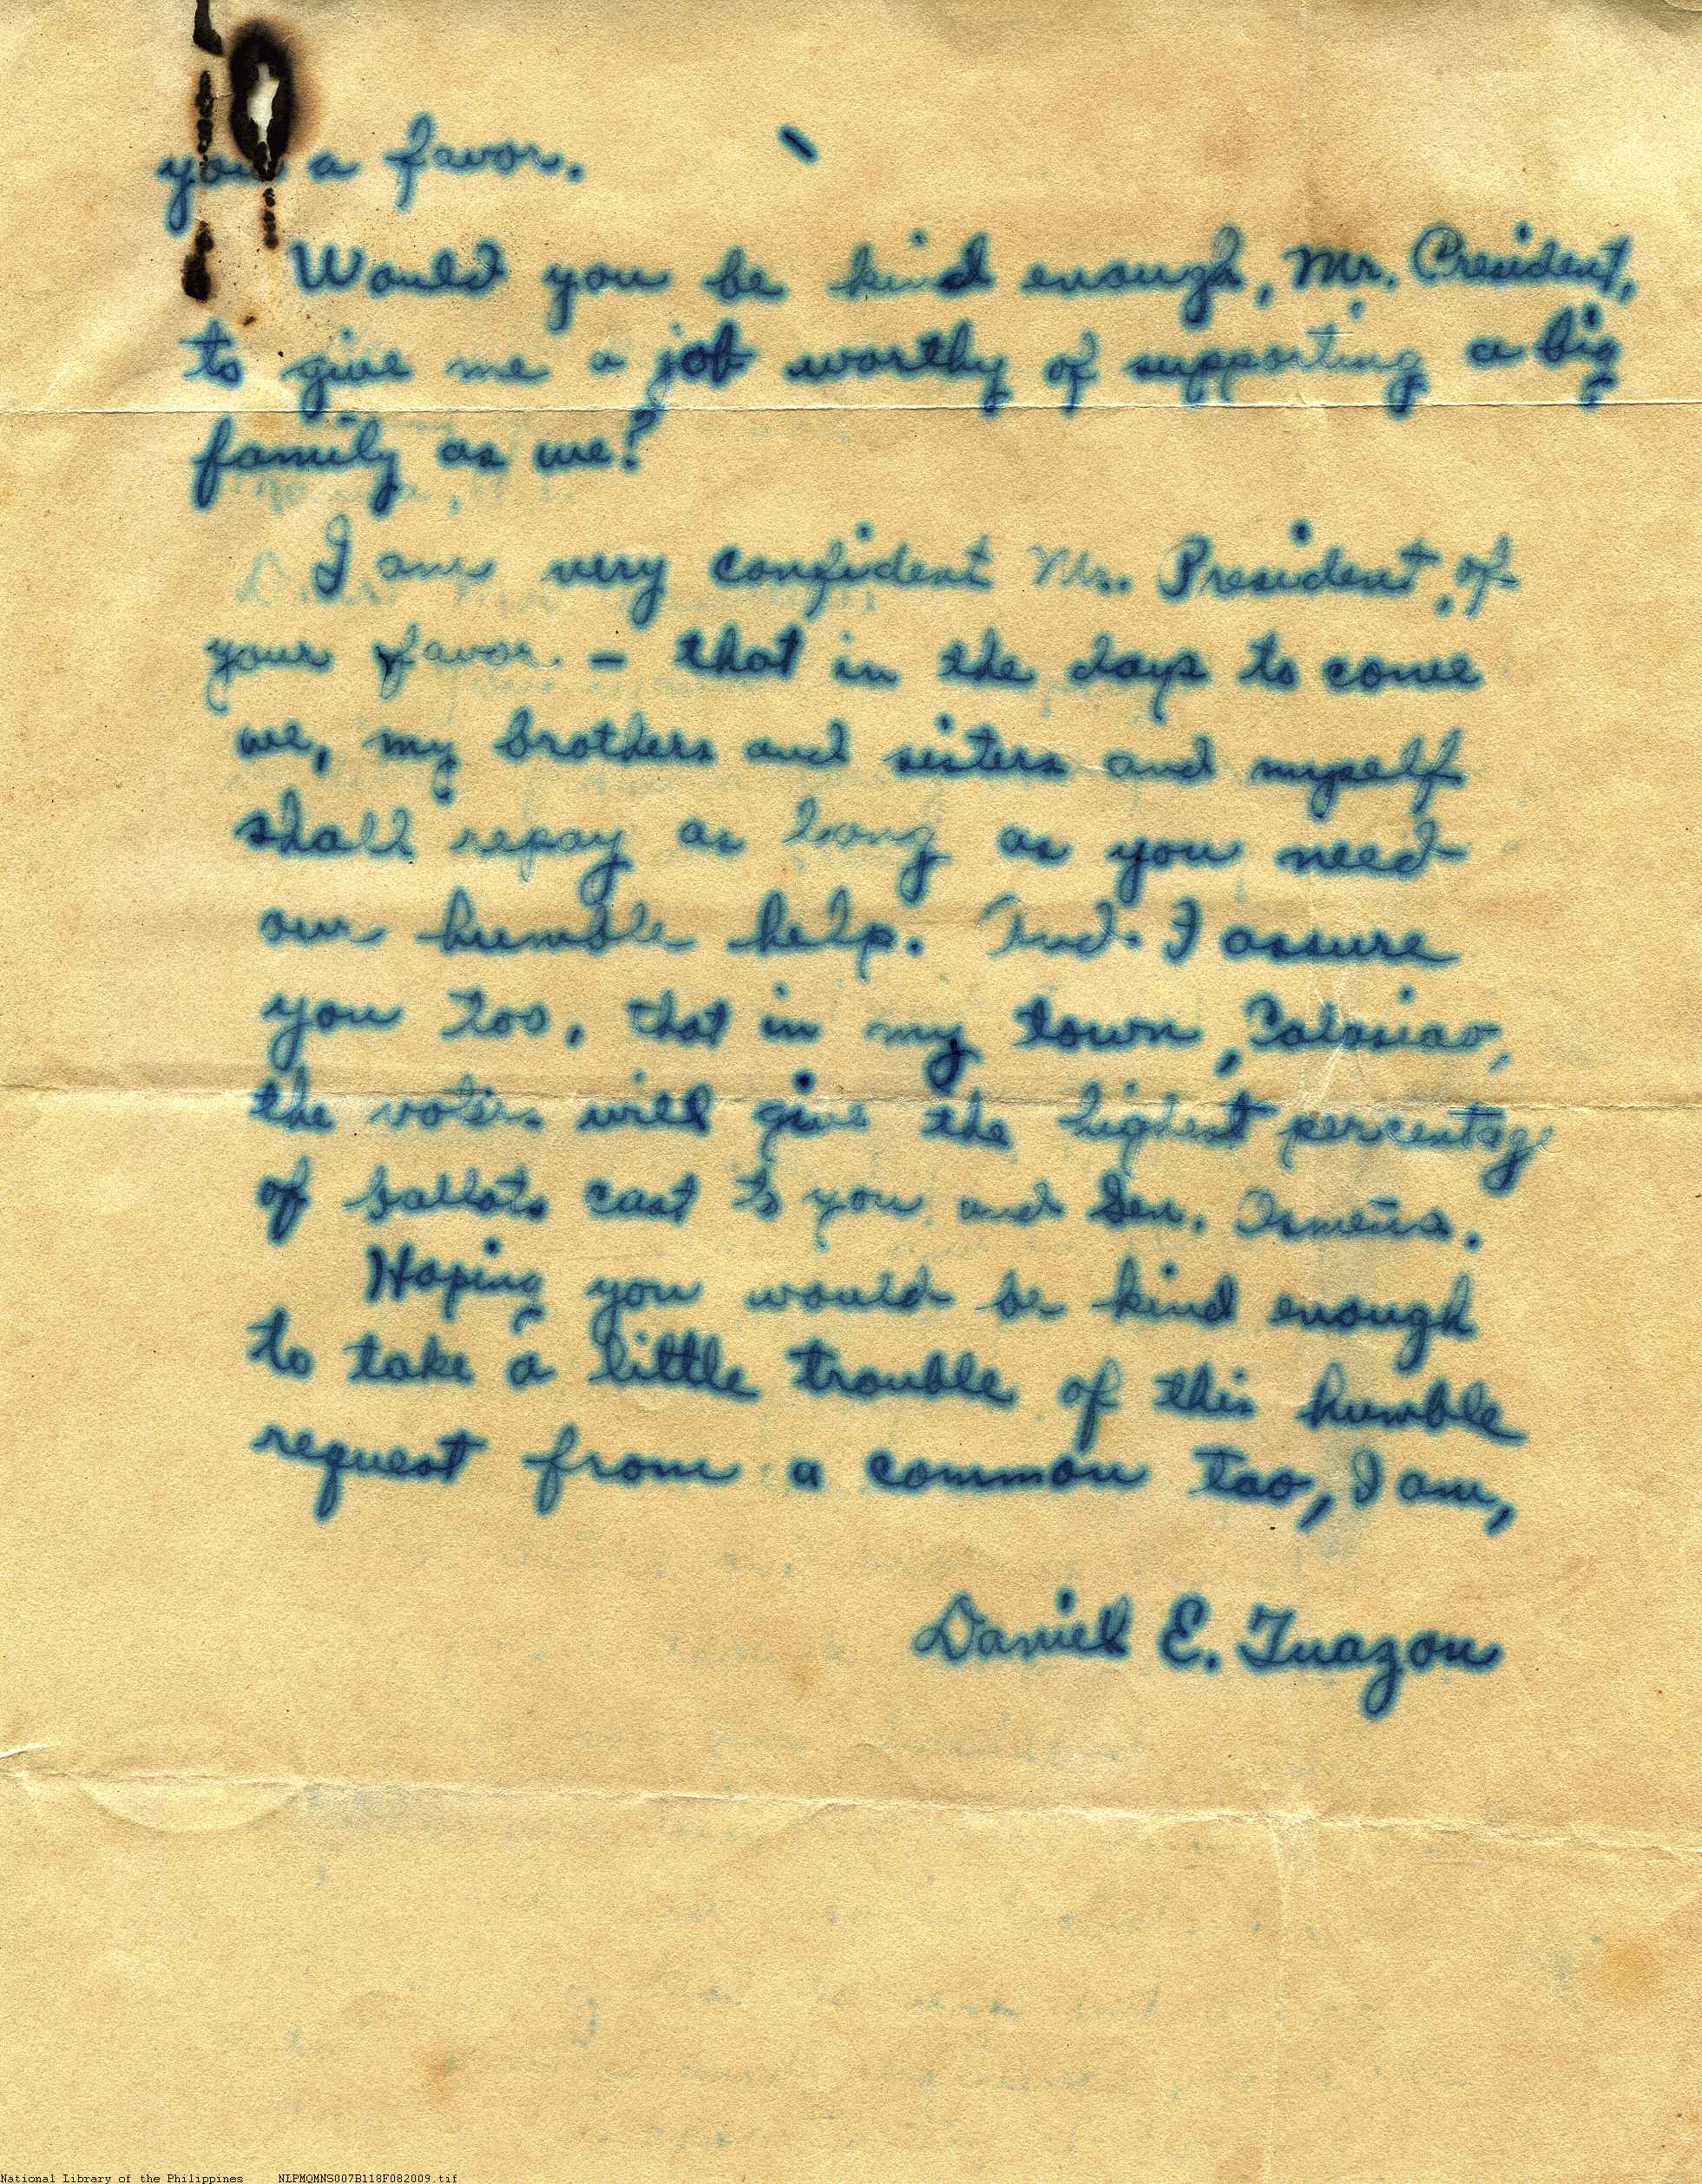 you a favor.
Would you be kind enough, Mr. President,
to give me a job worthy of supporting a big
family as we?
I am very confident Mr. President, of
your favor - that in the days to come
we, my brothers and sisters and myself
shall repay as long as you need
our humble help. And I assure
you too, that in my town, Calasiao,
the voters will give the highest percentage
of ballots cast to you and Sen. Osmeña.
Hoping you would be kind enough
to take a little trouble of this humble
request from a common tao, I am,
Daniel E. Tuazon
National Library of the Philippines NLPMQMNS007B118F082009.tif